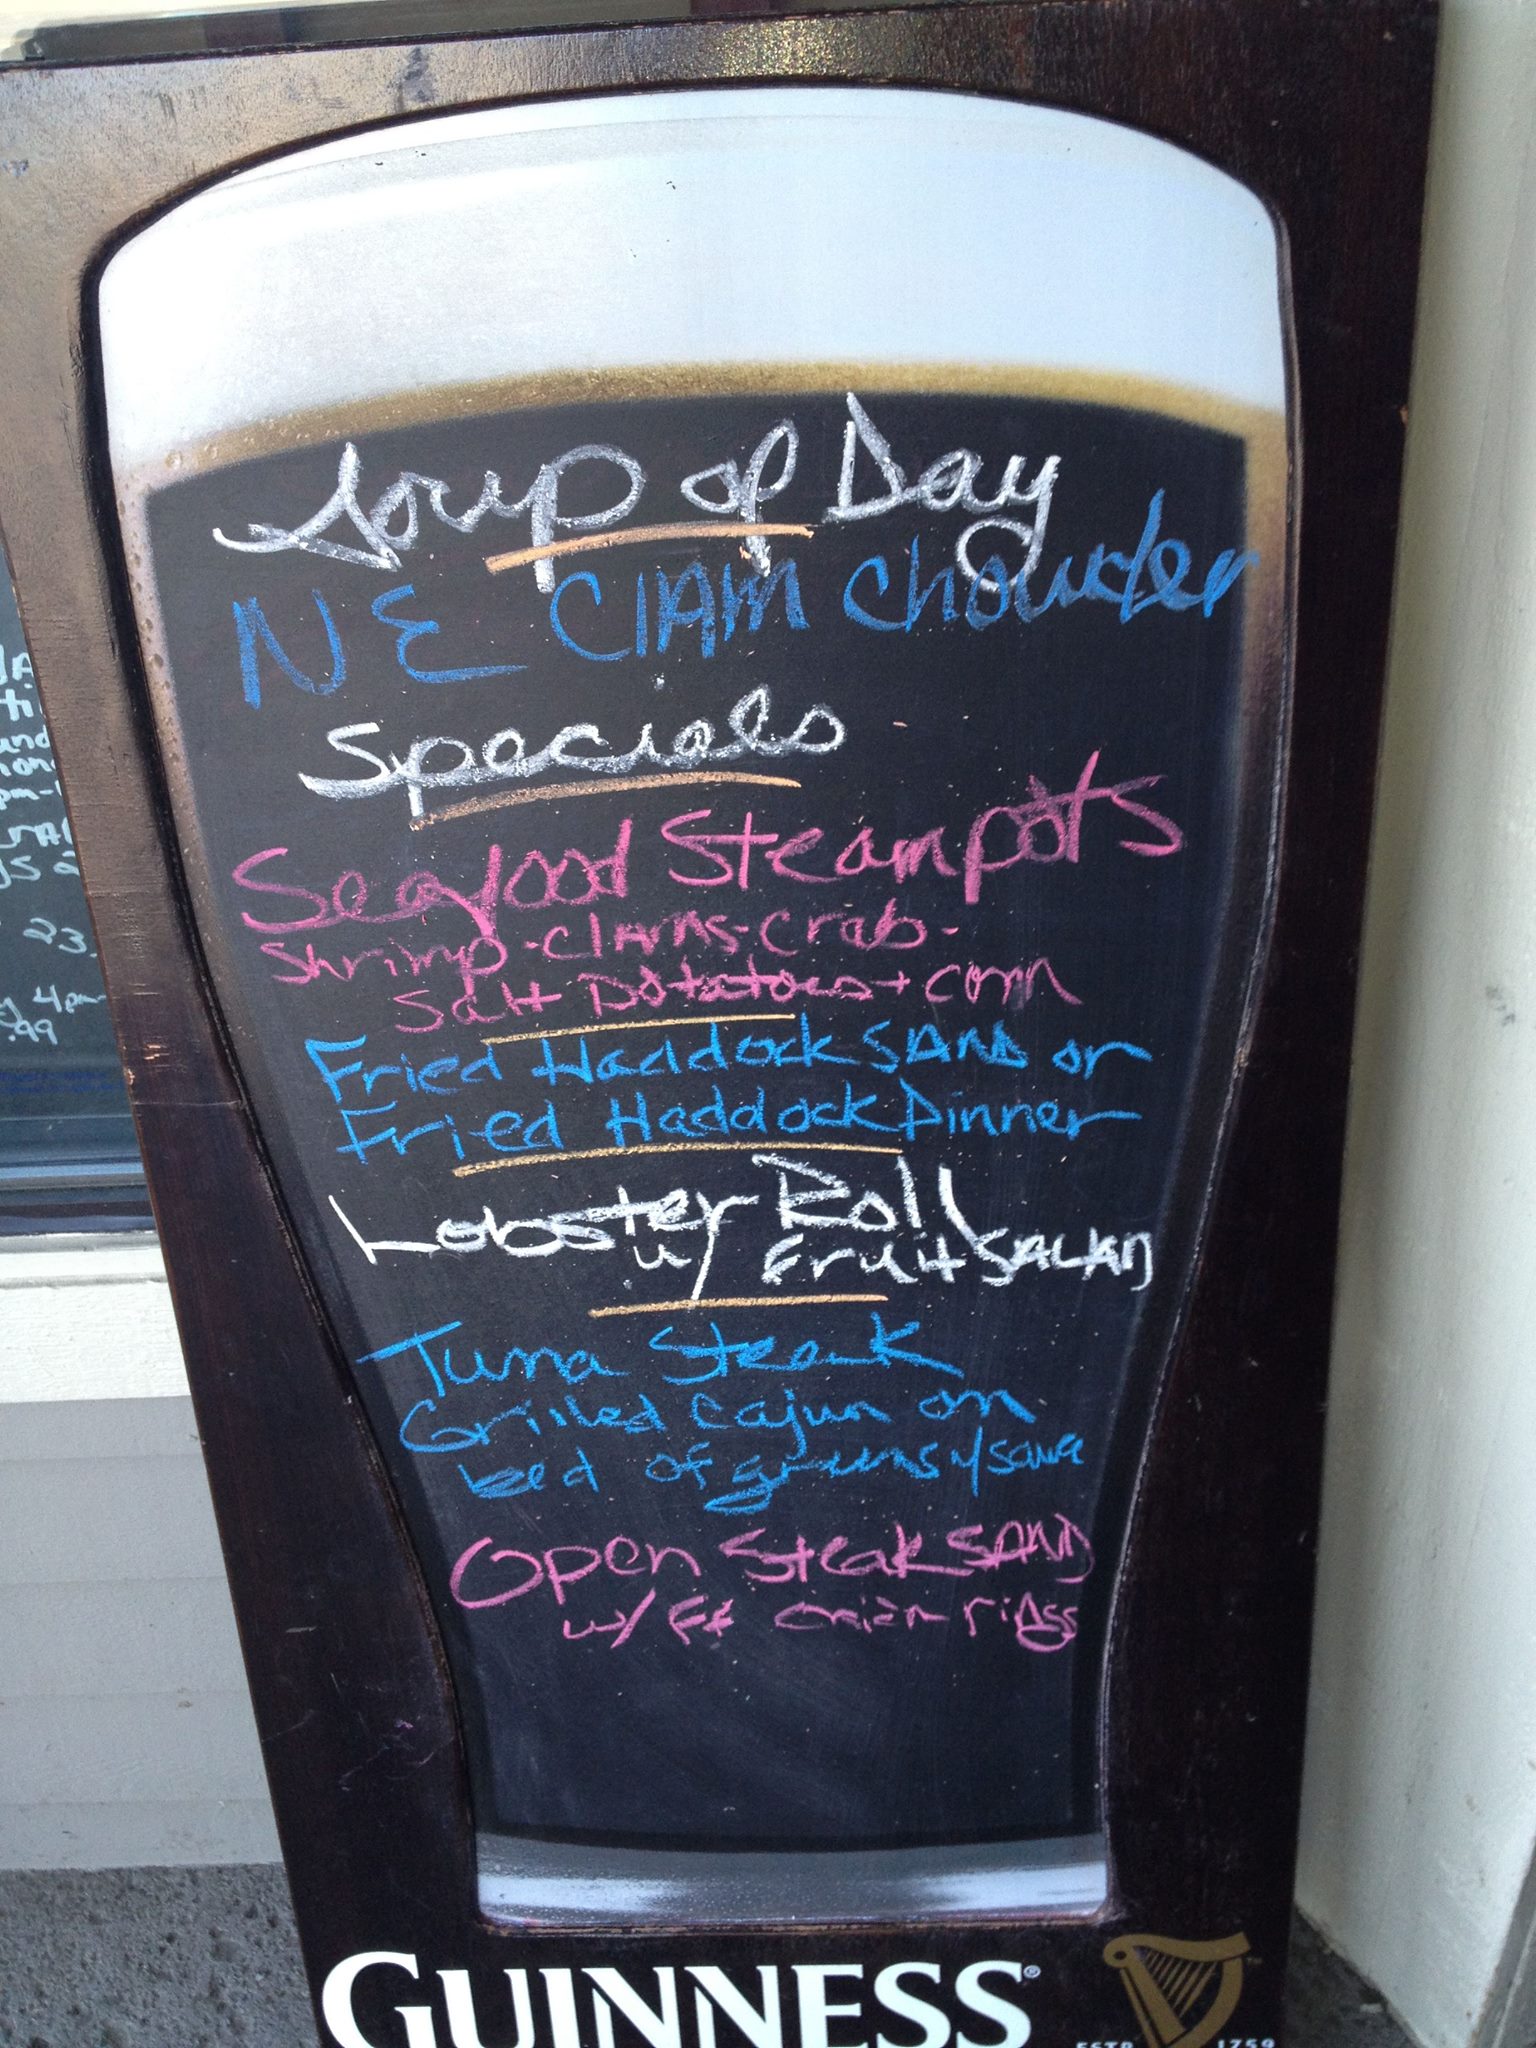 Soup of Day
NE Clam Chowder
Specials
Seafood Steampots
Shrimp-Clams-Crab-
Salt Potatoes + Corn
Fried Haddock SAND or
Fried Haddock Dinner
Lobster Roll
w/ Fruit SALAD
Tuna Steak
Grilled Cajun on
bed of greens w/
Open Steak SAND
w/ FF onion rings
GUINNESS®
ESTD 1759
23.
4pm
.99